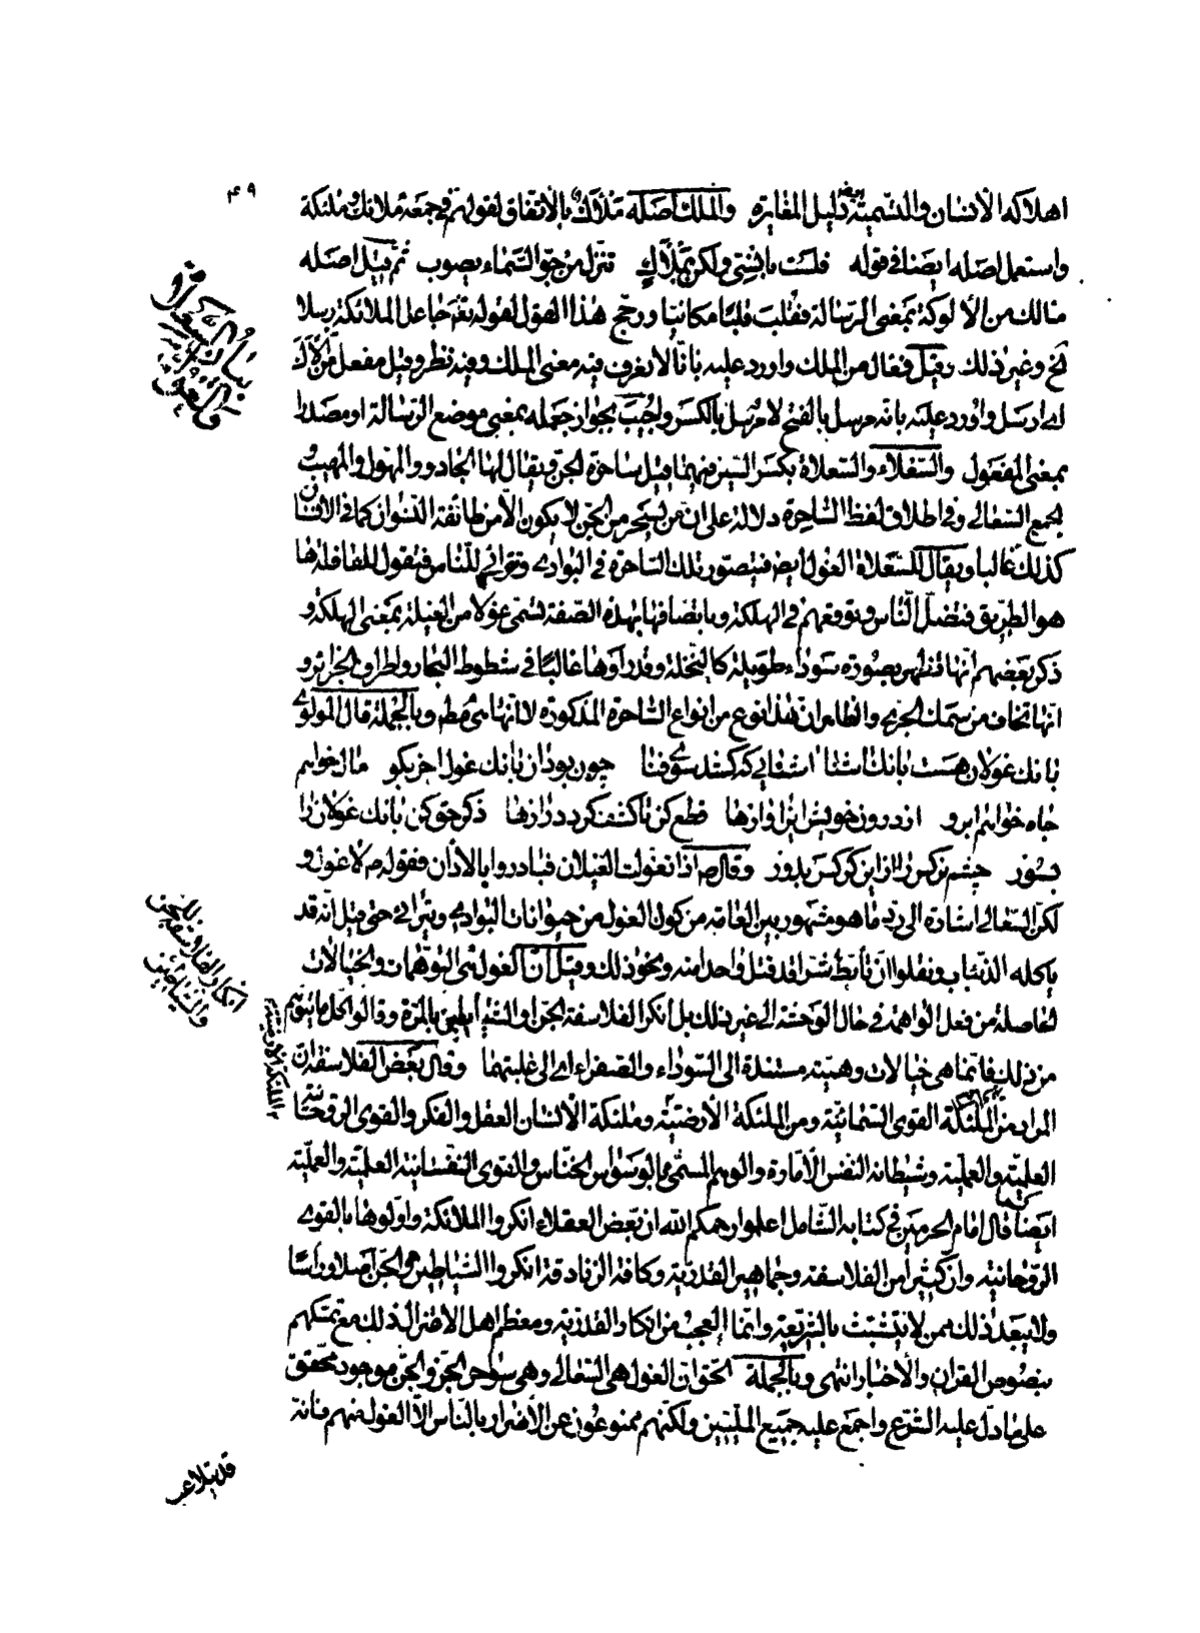 ۴۹
اهلاكه الأنسان والتسمية ايضا دليل المغايرة والملك اصله ملأك بالأتفاق لقولهم في جمعه ملائك وملئكة
واستعمل اصله ايضا في قوله فلست بانسي ولكن بملأك تنزل من جو السماء يصوب ثم قيل اصله
مالك من الألوكة بمعنى الرسالة فقلبت قلبا مكانيا ورجح هذا القول لقوله تعـ جاعل الملائكة رسلا
الخ وغير ذلك وقيل فعال من الملك واورد عليه بانا لا نعرف فيه معنى الملك وفيه نظر وقيل مفعل من لأك
اي ارسل واورد عليه بانه مرسل بالفتح لا مرسل بالكسر واجيب بجواز جعله بمعنى موضع الرسالة او مصدرا
بمعنى المفعول والسعلاء والسعلاة بكسر السين فيهما قيل ساحرة الجن ويقال لها الجادو والمهول والمهيب و
الجمع السعالي وفي اطلاق لفظ الساحرة دلالة على ان من يسحر من الجن لا يكون الا من طائفة النسوان كما في الانسان
كذلك غالبا ويقال للسعلاة الغول ايضـ فيتصور تلك الساحرة في البوادي وتترائى للناس فتقول للقافلة ها
هو الطريق فتضل الناس وتوقعهم في الهلكة وباتصافها بهذه الصفة تسمى غولا من الغيلة بمعنى الهلكة و
ذكر بعضهم انها تظهر بصورة سوداء طويلة كالنخلة وقد رأوها غالبا في شطوط البحار واطراف الجزائر و
انها تخاف من سمك الجري والظاهر ان هذا نوع من انواع الساحرة المذكورة لا انها شئ مطـ وبالجملة قال المولوي
بانك غولان هست بانك اشنا اشنائي كه كشد سوي فنا چون بود ان بانك غول اخر بكو مال خواهم
جاه خواهم ابرو از درون خويش اين اوازها قطع كن تا كشف كردد رازها ذكر حق كن بانك غولان را
بسوز چشم نركس را از اين كركس بدوز وقال صـ اذا تغولت الغيلان فبادروا بالأذان وقوله صـ لا غول و
لكن السعالي اشارة الى رد ما هو مشهور بين العامة من كون الغول من حيوانات البوادي ويترائى حتى قيل انه قد
ياكله الذئاب ونقلوا ان تأبط شرا قد قتل واحدا منه ونحو ذلك وقيل ان الغول شئ التوهمات والخيالات
الحاصلة من فعل الواهمة في حال الوحشة الى غير ذلك بل انكر الفلاسفة الجن والشياطين بالمرة وقالوا كل ما يتوهم
من ذلك فانما هي خيالات وهمية مستندة الى السوداء والصفراء اي الى غلبتهما وقال بعض الفلاسفة ان
المراد من الملئكة القوى السمائية ومن الملئكة الأرضية وملئكة الأنسان العقل والفكر والقوى الروحانية
العلمية والعملية وشيطانه النفس الأمارة والوهم المسمى بالوسواس الخناس والقوى النفسانية العلمية والعملية
ايضا قال امام الحرمين في كتابه الشامل اعلموا رحمكم الله ان بعض العقلاء انكروا الملائكة واولوها بالقوى
الروحانية وان كثيرا من الفلاسفة وجماهير القدرية وكافة الزنادقة انكروا الشياطين والجن اصلا وراسا
ولا يبعد ذلك ممن لا يتشبث بالشريعة وانما العجب من انكار القدرية ومعظم اهل الاعتزال ذلك مع تمسكهم
بنصوص القران والأخبار انتهى وبالجملة الحق ان الغول هي السعالي وهي سواحر الجن والجن موجود محقق
على ما دل عليه الشرع واجمع عليه جميع المليين ولكنهم ممنوعون عن الأضرار بالناس الا الغول منهم فانه
قد يتلاعب
انكار الفلاسفة للجن
والشياطين